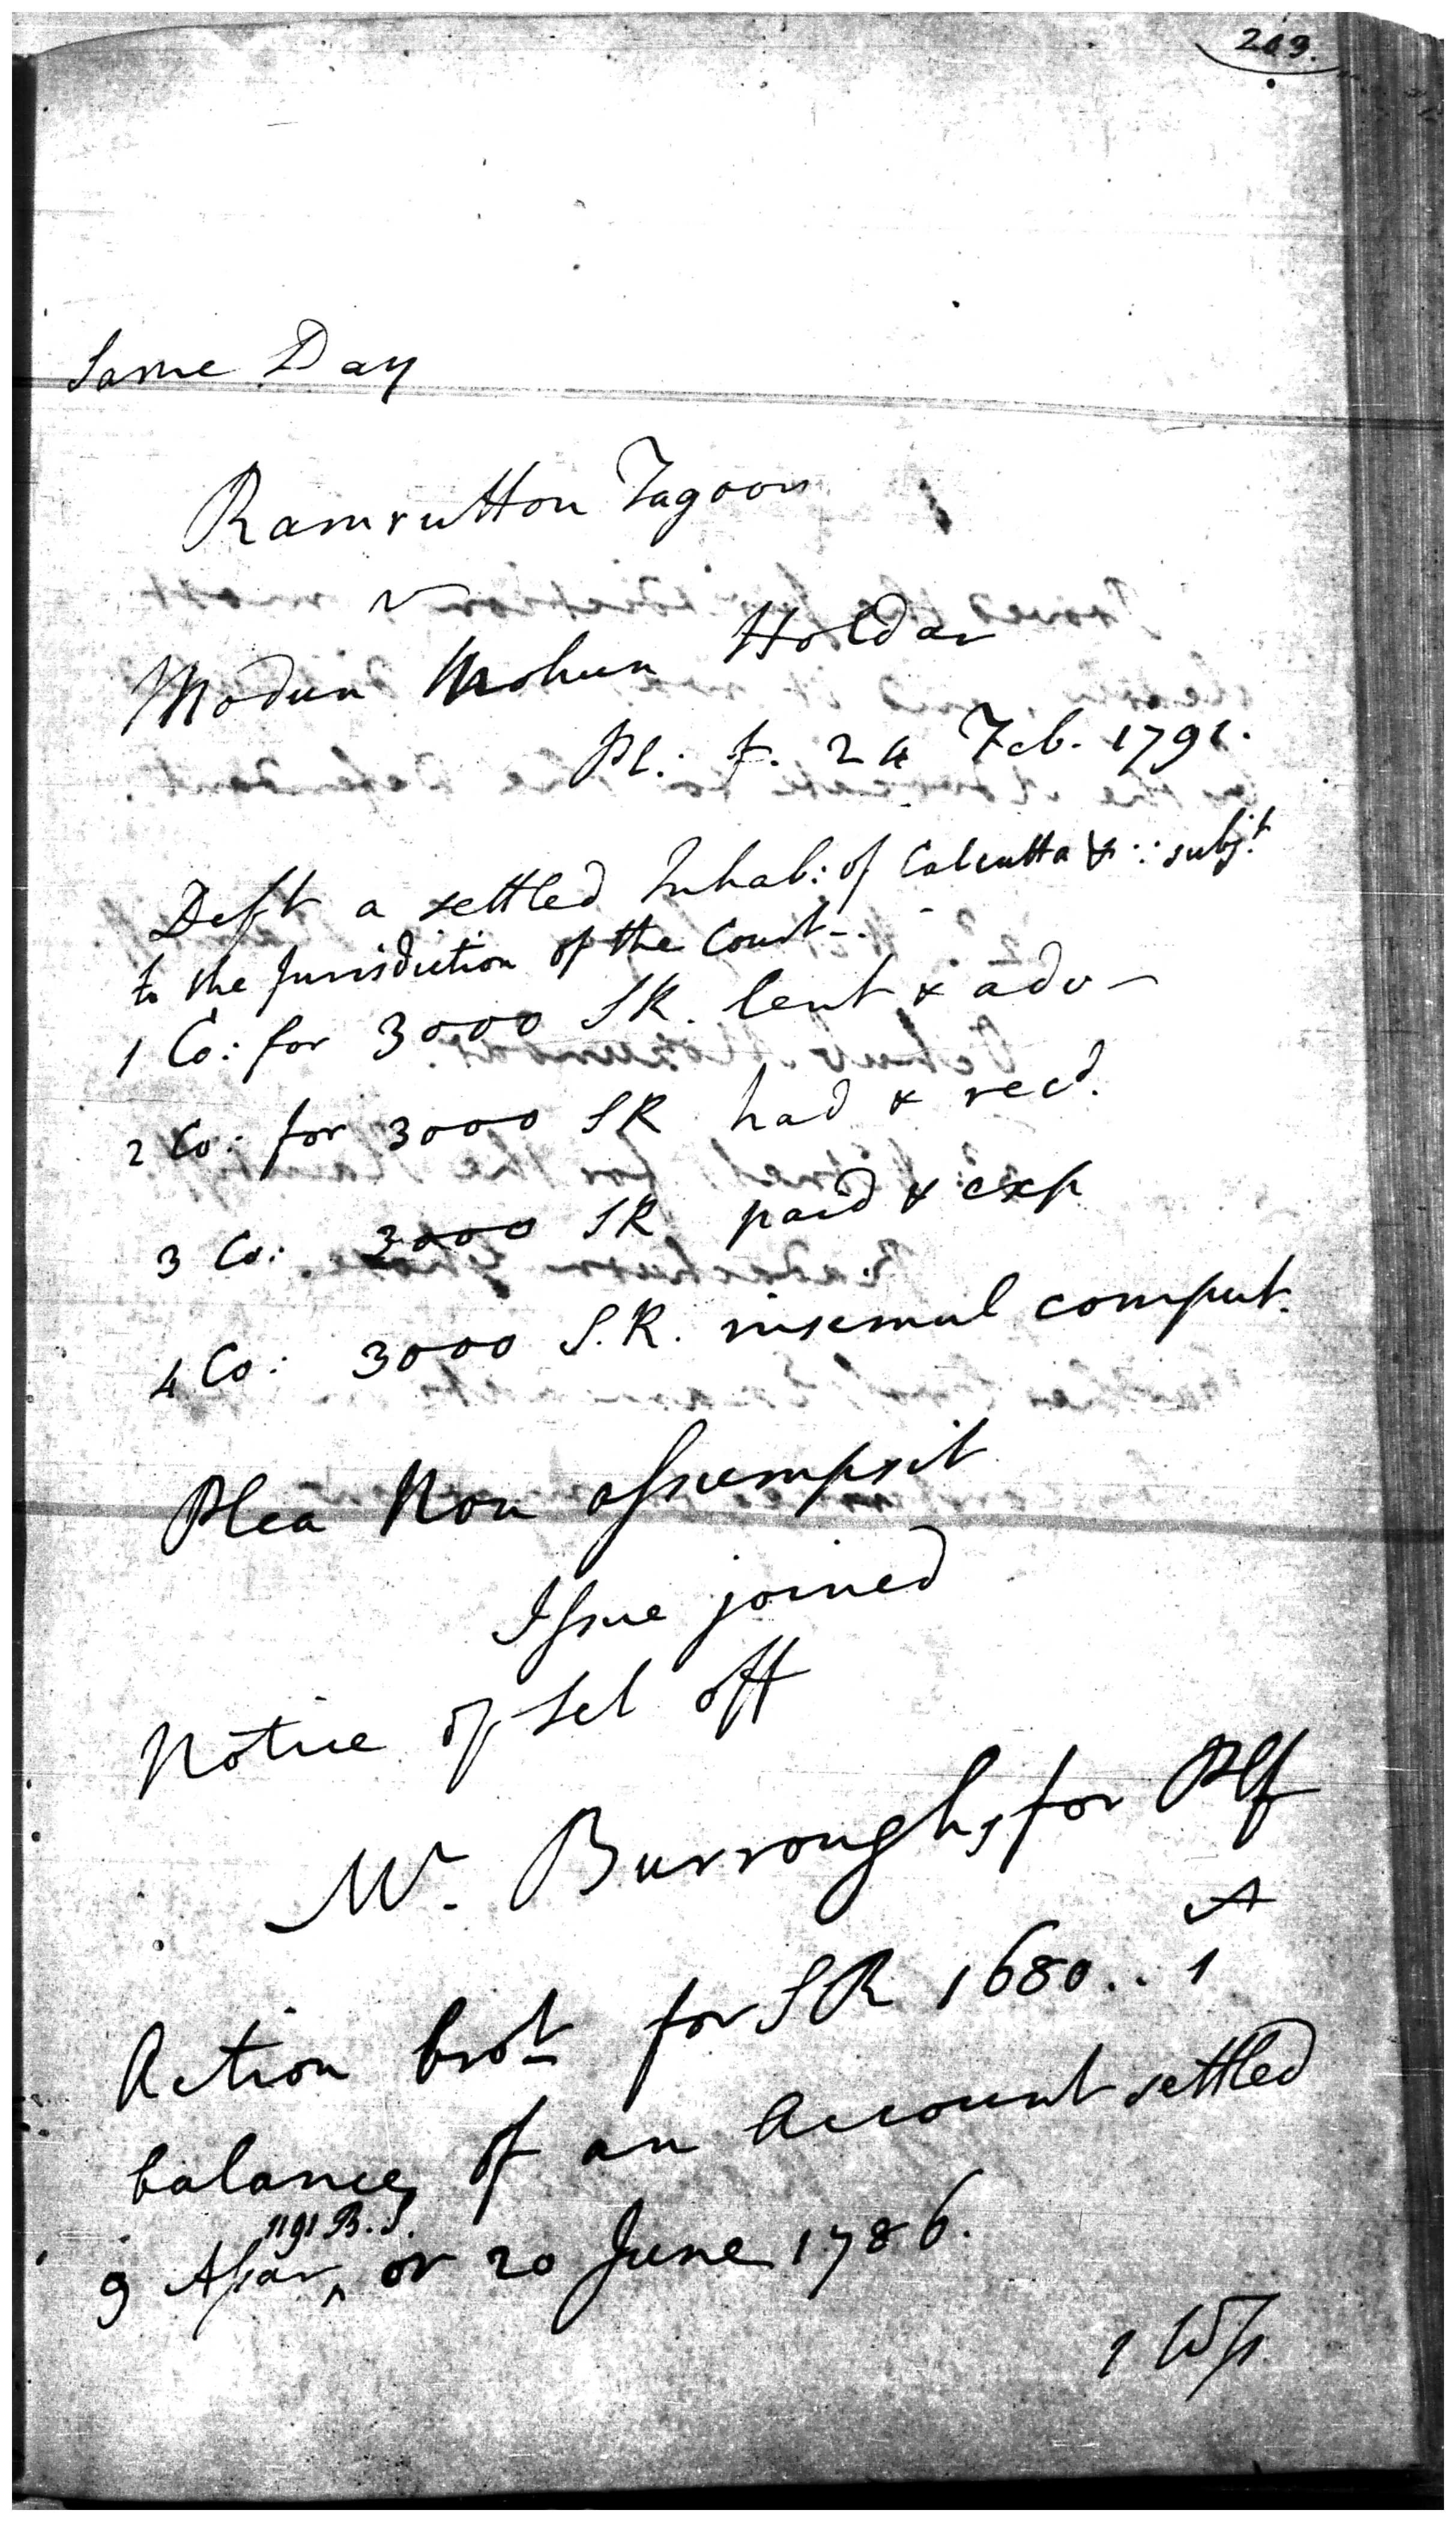 263.
Same Day
Ramrutton Tagoor
v
Modun Mohun Holdar
Pl: f. 24 Feb. 1791.
Deft a settled Inhab: of Calcutta & ∵ subjt
to the Jurisdiction of the Court -.
1 Co: for 3000 SR. lent & adv -
2 Co: for 3000 SR had & recd.
3 Co: 3000 SR paid & exp
4 Co: 3000 S.R. insemul comput.
Plea Non assumpsit
Issue joined
Notice of Set off
Mr. Burroughs for Plf
A
Action brot for SR 1680.. 1
balance of an Account settled
1191 B.S.
9 Assar ^ or 20 June 1786.
1 Wss.